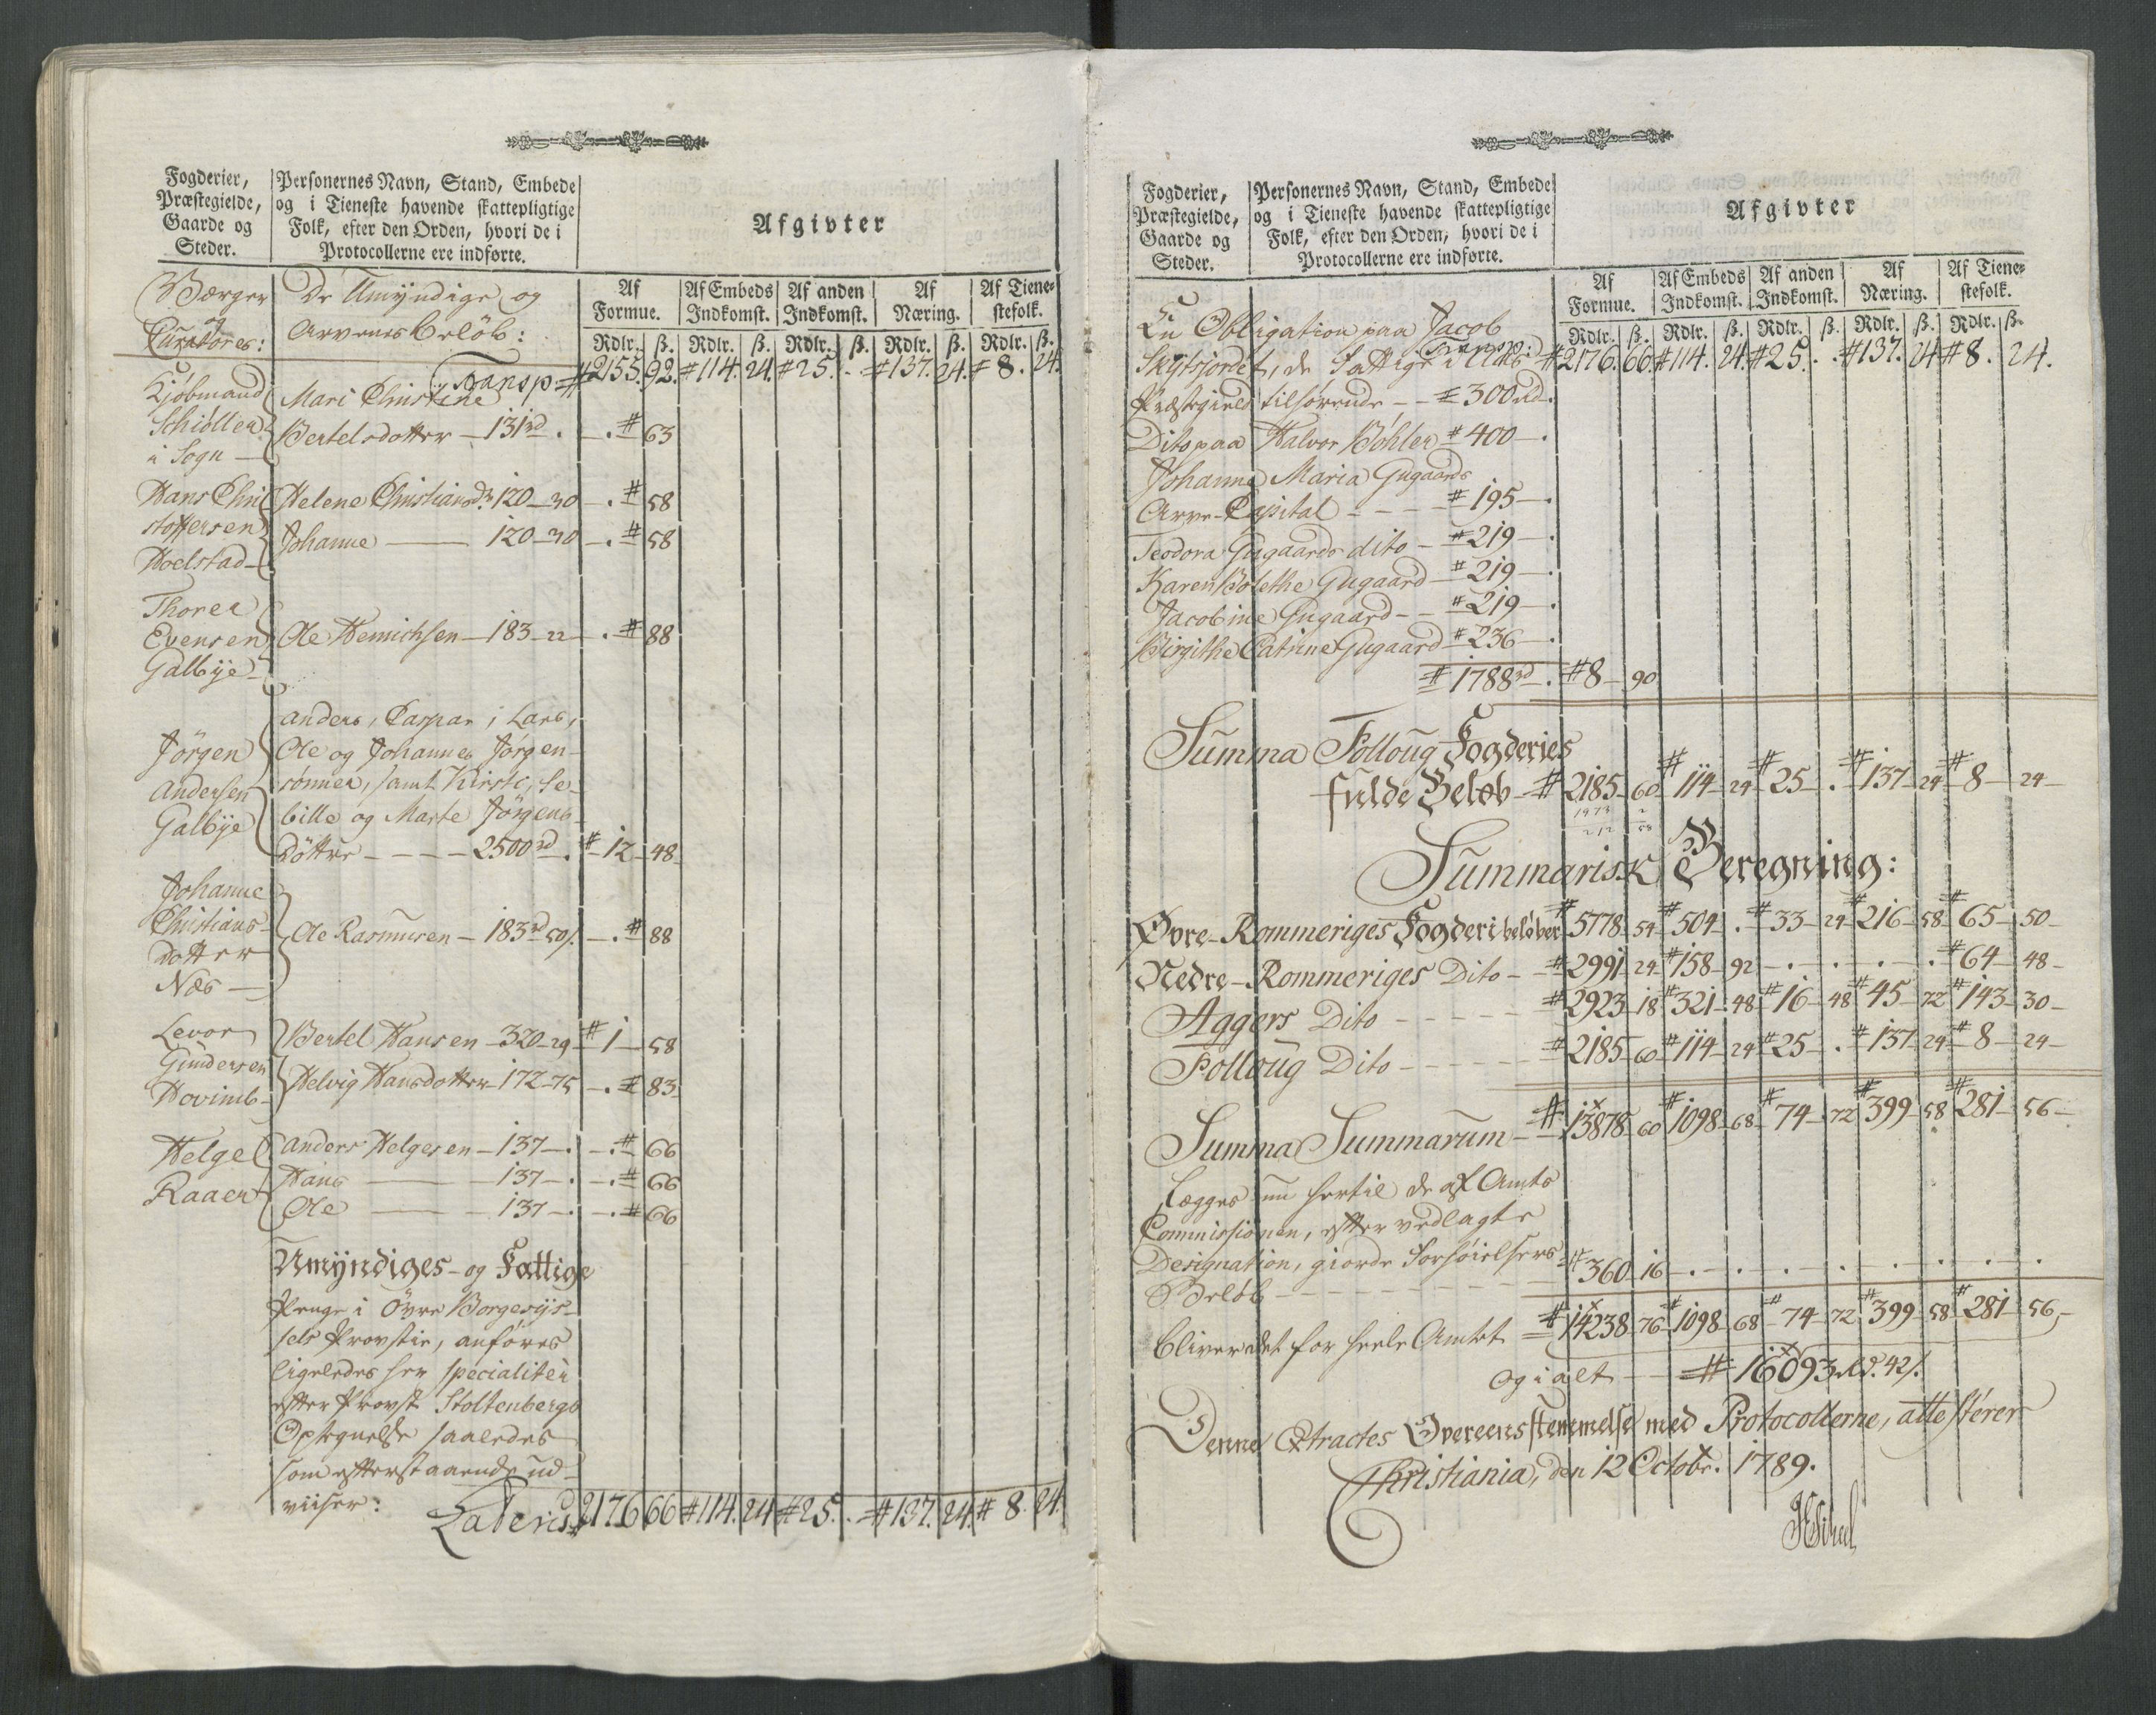 Fogderier, Præstegielde, Gaarde og Steder.
Personernes Navn, Stand, Embede og i Tieneste havende skattepligtige Folk, efter den Orden, hvori de i Protocollerne ere indførte.
Afgivter
Af Formue. Af Embeds Indkomst. Af anden Indkomst. Af Næring. Af Tienestefolk.
Rdlr. ß. Rdlr. ß. Rdlr. ß. Rdlr. ß. Rdlr. ß.
Værger og Curatores: De Umÿndige og
Arvenes beløb:
Transp # 2155. 92. # 114. 24. # 25. . # 137. 24. # 8. 24.
Kjøbmand Mari Christine
Schiøller Bertelsdotter — 131rd. — . # 63
i Sogn —
Hans Chri Helene Christiansd. 120 — 30 — . # 58
stoffersen Johanne — 120 — 30 — . # 58
Hoelstad —
Thorer
Evensen Ole Henrichsen — 183 — 22 — . # 88
Galbÿe —
Anders, Caspar, Lars,
Jörgen Ole og Johannes Jörgen-
Andersen sönner, samt Kirsti, Se-
Galbÿe bille og Marte Jörgens-
döttre — — — 2500rd. # 12 — 48 —
Johanne
Christians- Ole Rasmusen — 183rd 50ß. — . # 88
dotter
Næs —
Levor Bertel Hansen — 320 — 29 # 1 — 58
Gundersen Helvig Hansdotter — 172 — 75 — . # 83
Hovimb —
Helge Anders Helgesen — 137 — . — . # 66
Raaer Hans — 137 — . — . # 66
Ole — 137 — . — . # 66
Umÿndiges- og Fattige
Penge i Övre Borgesÿs-
sels Provstie, anføres
ligeledes her specialiter
efter Provst Stoltenbergs
Optegnelse saaledes
som efterstaaende ud-
viiser:
Lateris # 2176 66 # 114. 24 # 25. . # 137. 24. # 8. 24.
Fogderier, Præstegielde, Gaarde og Steder.
Personernes Navn, Stand, Embede og i Tieneste havende skattepligtige Folk, efter den Orden, hvori de i Protocollerne ere indførte.
Afgivter
Af Formue. Af Embeds Indkomst. Af anden Indkomst. Af Næring. Af Tienestefolk.
Rdlr. ß. Rdlr. ß. Rdlr. ß. Rdlr. ß. Rdlr. ß.
En Obligation paa Jacob
Transp: # 2176. 66. # 114. 24. # 25. . . # 137. 24 # 8. 24.
de Fattige i
Præstegield tilhørende — — # 300 rd.
Dito paa Halvor Böhler # 400 — .
Johanne Maria Gugaards
Arve-Capital — — — # 195 — .
Teodora Gugaards dito — # 219 — .
Karen Bolethe Gugaard — # 219 — .
Jacobine Gugaard — — # 219 — .
Birgithe Catrine Gugaard # 236 — .
# 1788rd. # 8 — 90
Summa Folloug Fogderies
fulde Beløb — # 2185 — 60 # 114 — 24 # 25 — . # 137 — 24 # 8 — 24 —
Summarisk Beregning:
Øvre-Rommeriges Fogderi beløber # 5778 — 54 # 504 — . # 33 — 24 # 216 — 58 # 65 — 50 —
Nedre-Rommeriges Dito — # 2991 24 # 158 — 92 — . — . — . — . # 64 — 48 —
Aggers Dito — — — # 2923 18 # 321 — 48 # 16 — 48 # 45 — 72 # 143 — 30 —
Folloug Dito — — — # 2185 60 # 114 — 24 # 25 — . # 137 — 24 # 8 — 24 —
Summa Summarum — # 13878 60 # 1098 — 68 # 74 — 72 # 399 — 58 # 281 — 56 —
Lægges nu hertil de af Amts
Commissionen, efter vedlagte
Designation, giorde Forhøielsers
Beløb — — — # 360 16 — . — . — . — . — . — . — . — .
bliver det for heele Amtet # 14238 76 # 1098 68 # 74 — 72 # 399 — 58 # 281 — 56 —
og i alt — # 16093 rd. 42ß.
Denne Extractes Overeensstemmelse med Protocollerne, attesterer
Christiania, den 12 Octobr. 1789.